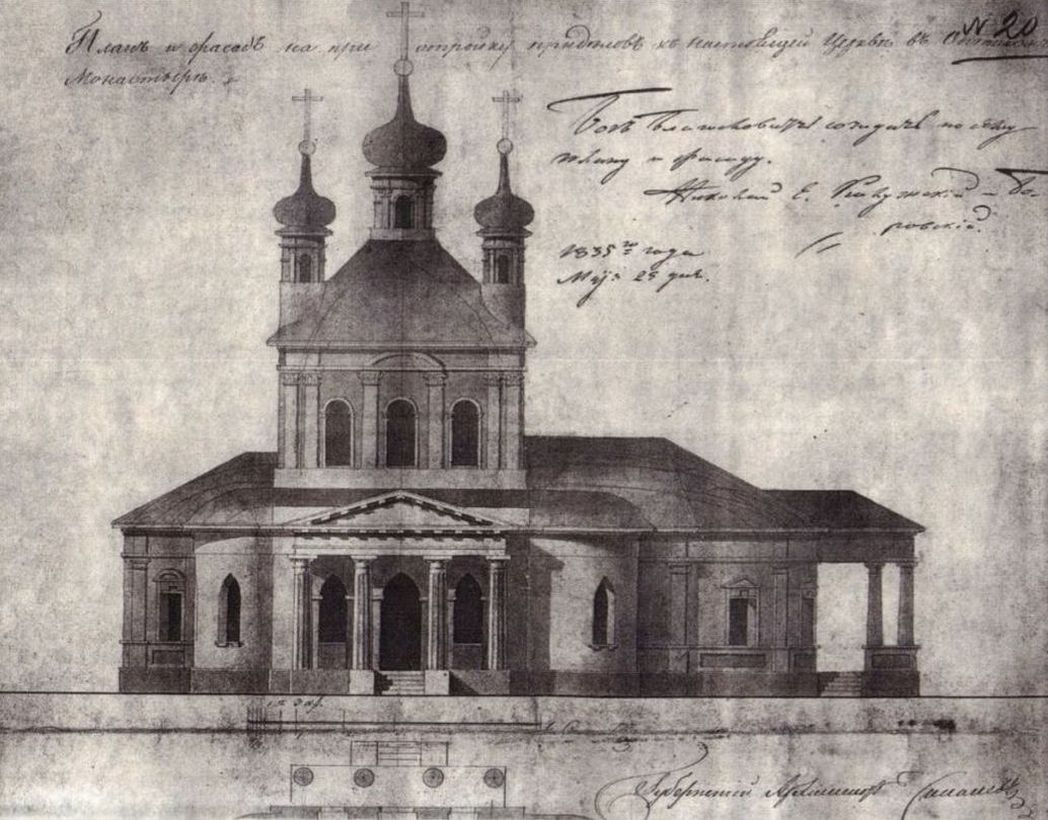 № 20
Планъ и фасадъ на при стройку придѣловъ къ настоящей Церкви въ
Монастырѣ.
Богъ благословитъ созидать по сему
плану и фасаду.
Николай Е. Калужскій и Бо-
ровскій.
1835 го года
Маія 25 дня.
Губернскій Архитекторъ